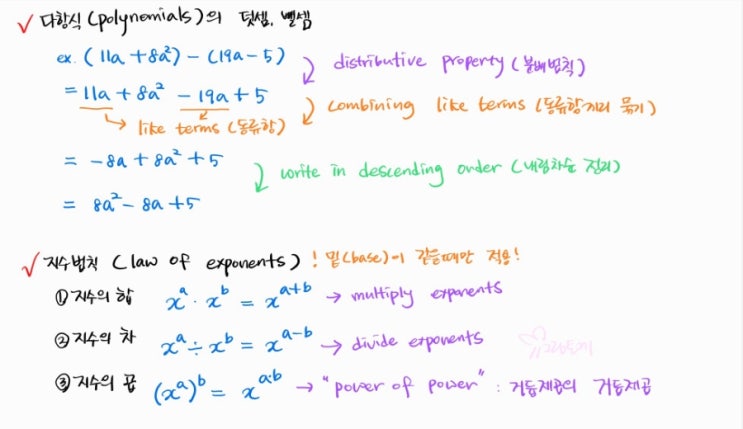 ✓ 다항식 (polynomials)의 덧셈, 뺄셈
ex. (11a + 8a²) - (19a - 5)
distributive property (분배법칙)
= 11a + 8a² - 19a + 5
combining like terms (동류항끼리 묶기)
→ like terms (동류항)
= -8a + 8a² + 5
write in descending order (내림차순 정리)
= 8a² - 8a + 5
✓ 지수법칙 (law of exponents) ! 밑(base)이 같을때만 적용!
① 지수의 합 xᵃ · xᵇ = xᵃ⁺ᵇ → multiply exponents
② 지수의 차 xᵃ ÷ xᵇ = xᵃ⁻ᵇ → divide exponents
③ 지수의 곱 (xᵃ)ᵇ = xᵃ·ᵇ → "power of power" : 거듭제곱의 거듭제곱